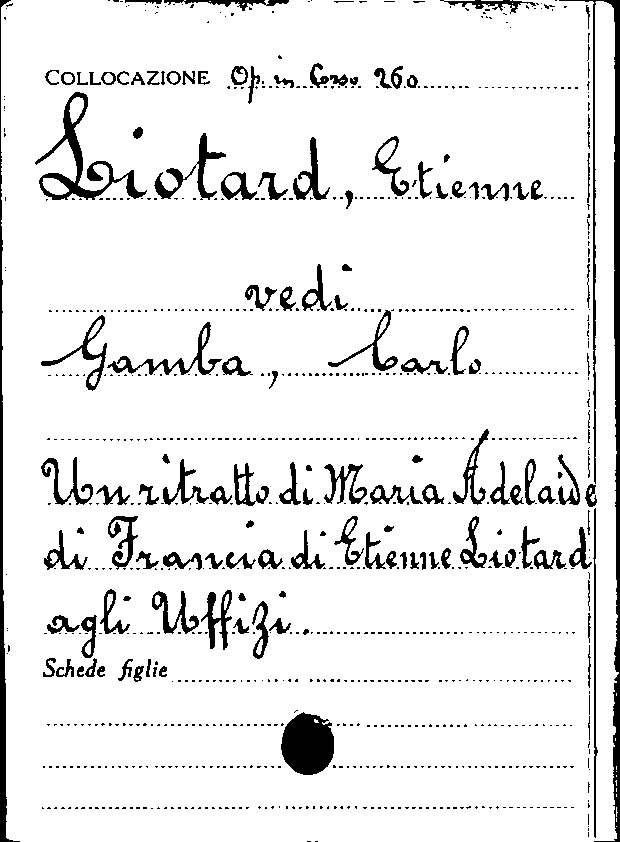 COLLOCAZIONE Op. in Corso 260
Liotard, Etienne
vedi
Gamba, Carlo
Un ritratto di Maria Adelaide
di Francia di Etienne Liotard
agli Uffizi.
Schede figlie